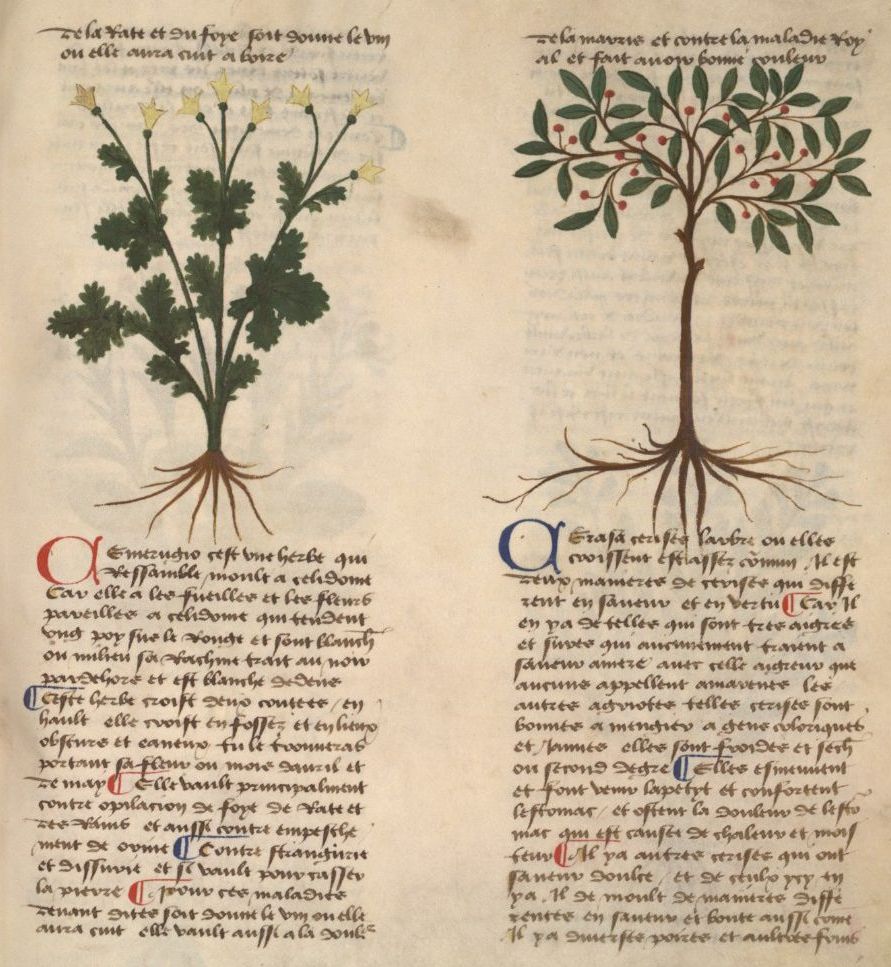 De la Rate et du foye soit donne le vin
ou elle aura cuit a boire
Emerugio cest une herbe qui
Ressamble moult a celidoine
Car elle a les fueilles et les fleurs
pareilles a celidoine qui tendent
ung poy sur le Rouge et sont blanch
ou milieu sa Rachine trait au noir
par dehors et est blanche dedens
Ceste herbe croist deux coutees en
hault elle croist en fossez et en lieux
obscurs et eaueux tu le trouveras
portant sa fleur ou mois davril et
de may Elle vault principalment
contre opilacion de foye de Rate et
des Rains et aussi contre empesche
ment de oryne Contre stranguirie
et dissurie et si vault pour casser
la pierre pour ces maladies
devant dites soit donne le vin ou elle
aura cuit elle vault aussi a la doulr
de la mavris et contre la maladie Roy
al et fait avoir bonne couleur
Erasa cerises larbre ou elles
croissent est assez comun Il est
deux manieres de cerises qui diffe
rent en saveur et en vertu Car Il
en ya de telles qui sont tres aigres
et sures qui aucunement traient a
saveur amere avec celle aigreur que
aucuns appellent amarenes les
autres agriotes telles cerises sont
bonnes a mengier a gens coloriques
et Jaunes elles sont froides et sech
ou second degre Elles esmeuvent
et font venir lapetyt et confortent
lestomac et ostent la douleur de lesto
mac qui est causee de chaleur et mois
teur Il ya autres cerises qui ont
saveur doulce et de ceulx ycy en
ya Il de moult de manieres diffe
rentes en saveur et bonte aussi come
Il ya diverses poires et aultres fruis